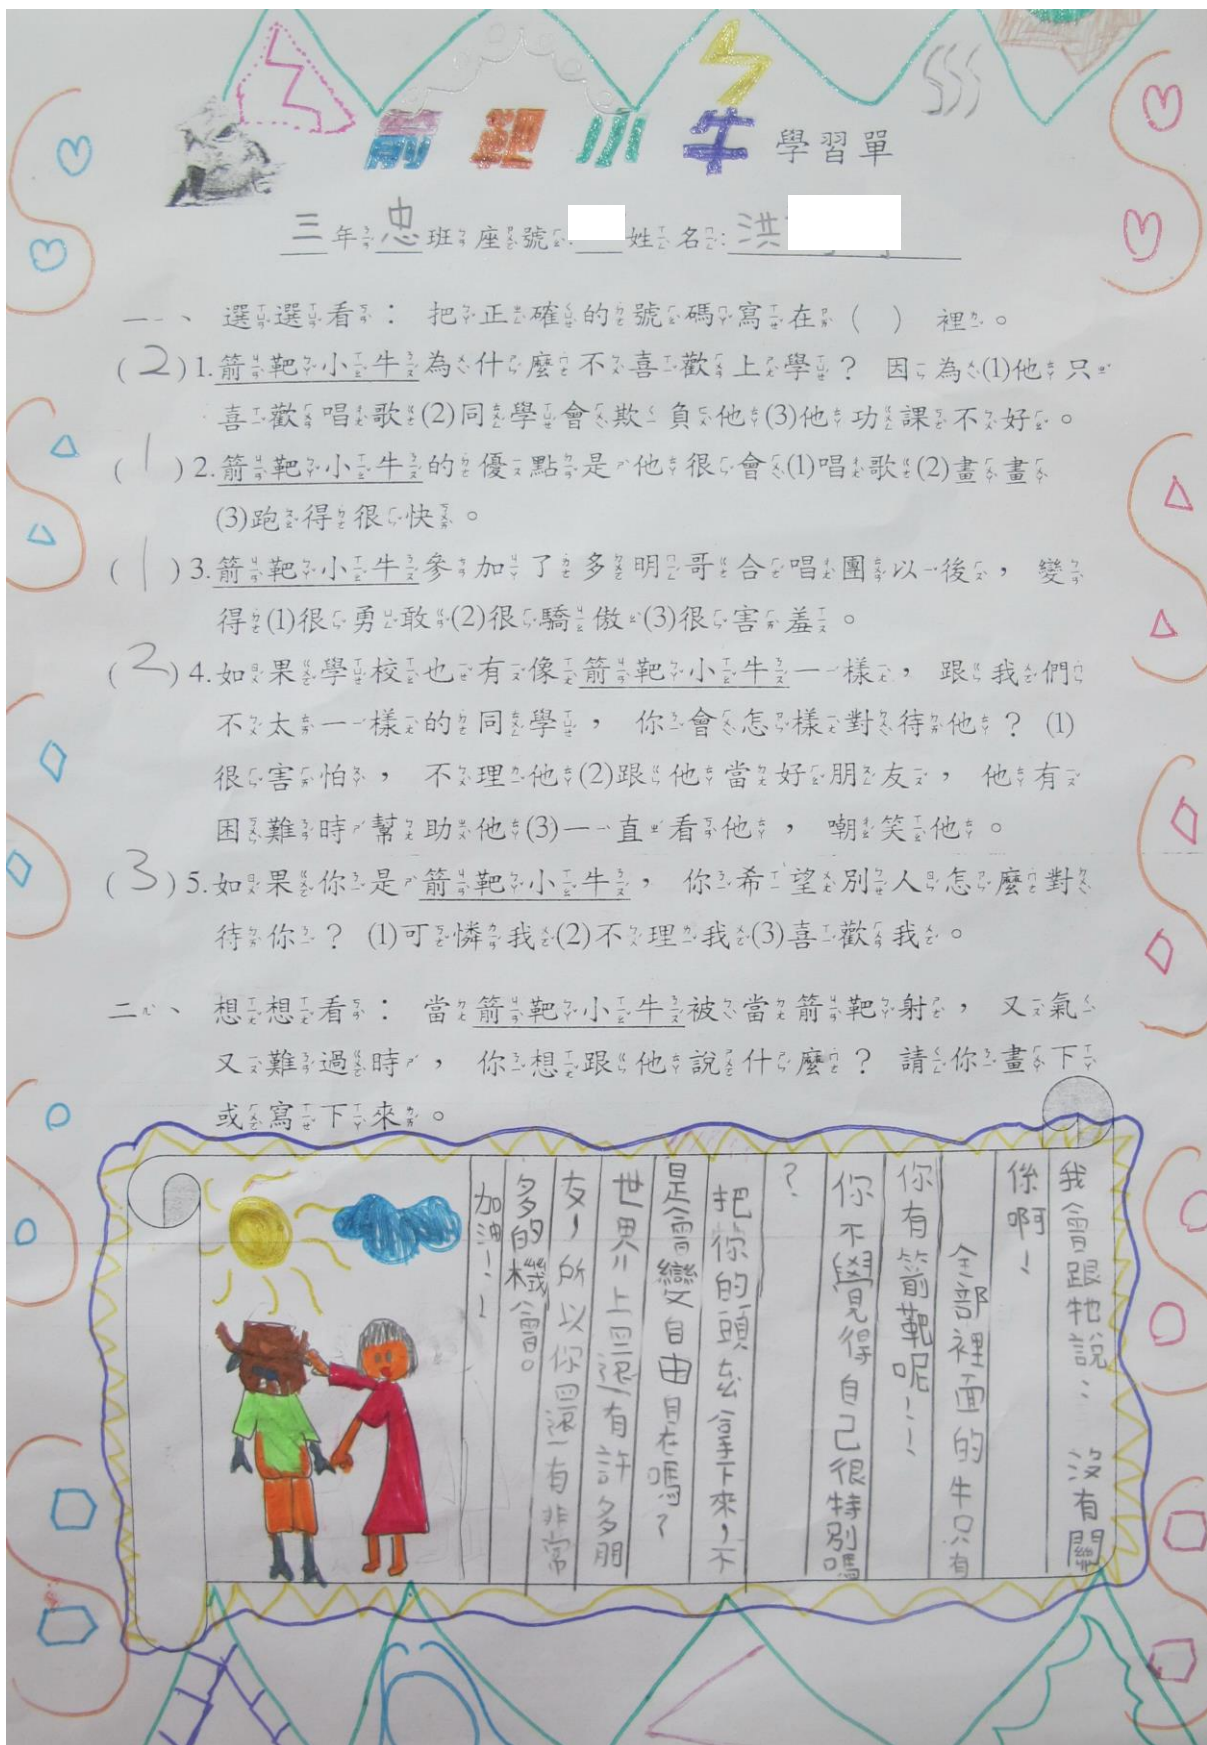 箭靶小牛學習單
三年忠班座號:姓名:洪
一、選選看：把正確的號碼寫在（ ）裡。
(2)1.箭靶小牛為什麼不喜歡上學？因為(1)他只
喜歡唱歌(2)同學會欺負他(3)他功課不好。
(1)2.箭靶小牛的優點是他很會(1)唱歌(2)畫畫
(3)跑得很快。
(1)3.箭靶小牛參加了多明哥合唱團以後，變
得(1)很勇敢(2)很驕傲(3)很害羞。
(2)4.如果學校也有像箭靶小牛一樣，跟我們
不太一樣的同學，你會怎樣對待他？(1)
很害怕，不理他(2)跟他當好朋友，他有
困難時幫助他(3)一直看他，嘲笑他。
(3)5.如果你是箭靶小牛，你希望別人怎麼對
待你？(1)可憐我(2)不理我(3)喜歡我。
二、想想看：當箭靶小牛被當箭靶射，又氣
又難過時，你想跟他說什麼？請你畫下
或寫下來。
我會跟牠說：沒有關
係啊！
全部裡面的牛只有
你有箭靶呢！！！
你不覺得自己很特別嗎
？
把你的頭套拿下來，不
是會變自由自在嗎？
世界上還有許多朋
友，所以你還有非常
多的機會。
加油！！